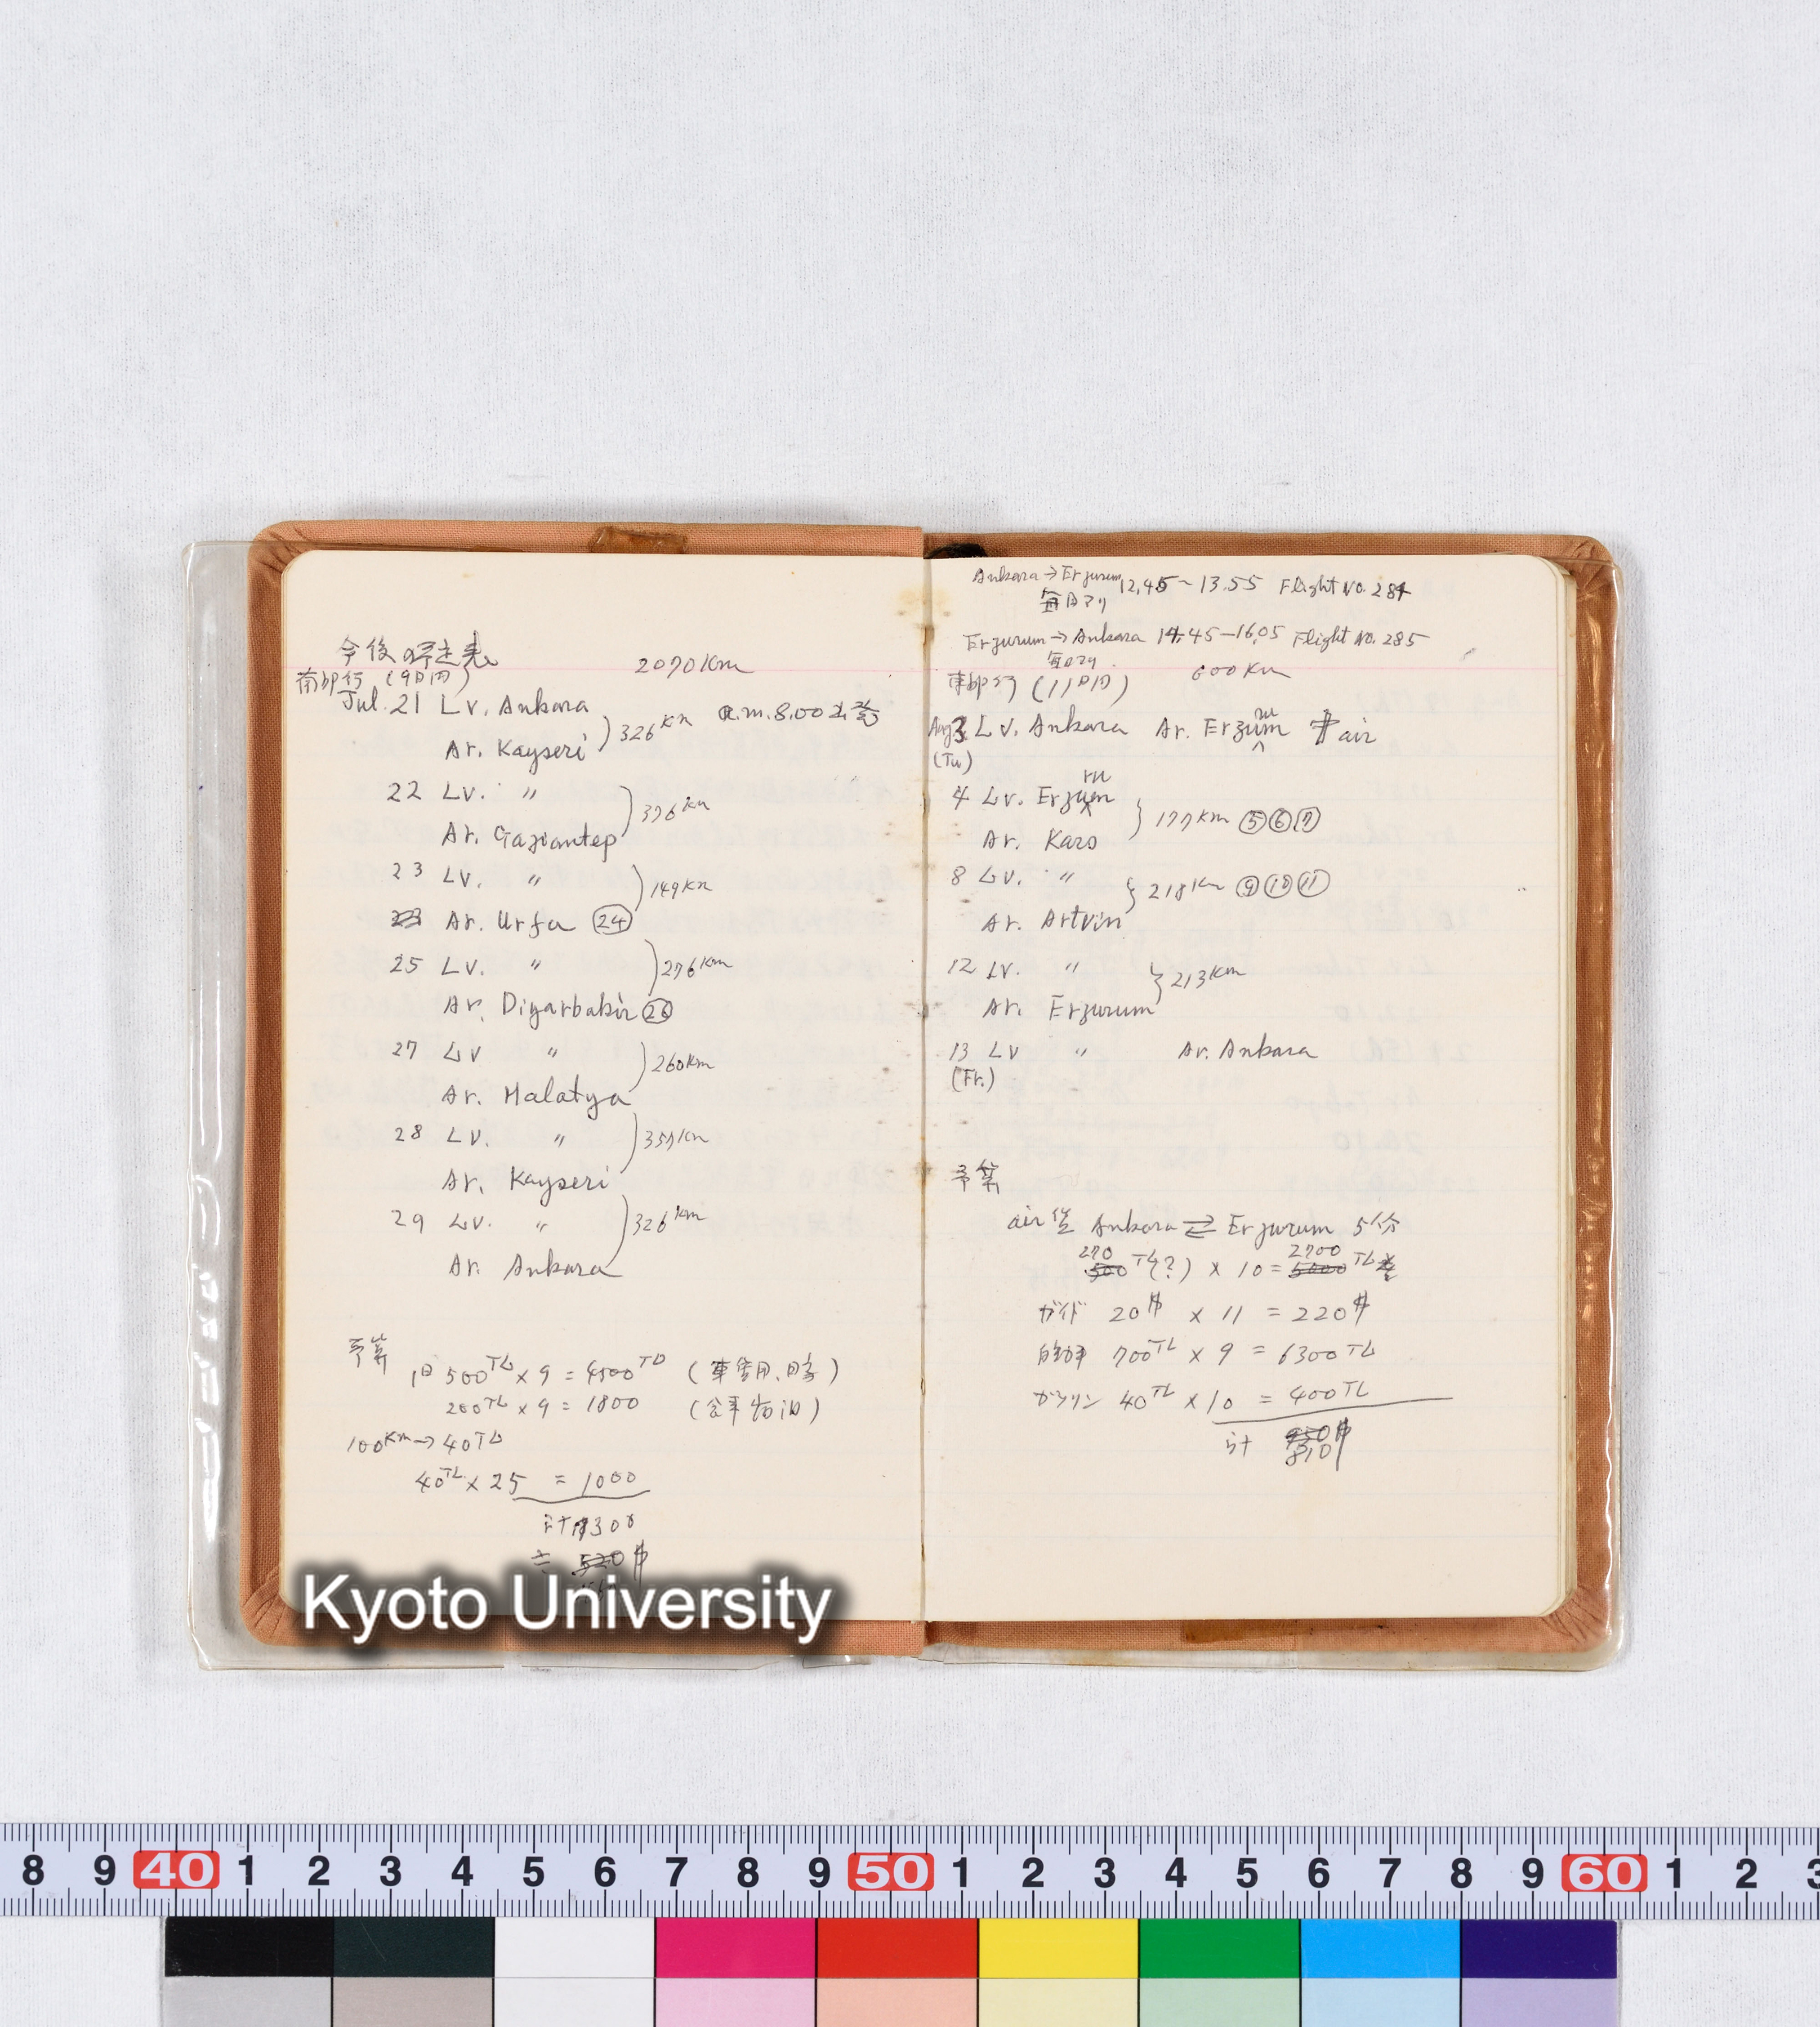 今後の予定表
南部行 (9日間) 2070Km
Jul. 21 Lv. Ankara a.m. 8.00 出発
Ar. Kayseri 326Km
22 Lv. 〃
Ar. Gaziantep 376Km
23 Lv. 〃 149Km
Ar. Urfa ㉔
25 Lv. 〃 276Km
Ar. Diyarbakir ㉖
27 Lv 〃 260Km
Ar. Malatya
28 Lv. 〃 357Km
Ar. Kayseri
29 Lv. 〃 326Km
Ar. Ankara
予算
1日 500TL × 9 = 4500TL
200TL × 9 = 1800
100Km→ 40TL
40TL × 25 = 1000
計 7300
≒ 520$
Kyoto University
Ankara→Erzurum 12,45~13.55 Flight No. 284
毎日アリ
Erzurum→Ankara 14.45-16.05 Flight No. 285
毎日アリ
東部行 (11日間) 600Km
Aug 3 Lv. Ankara Ar. Erzurum air
(Tu.)
4 Lv. Erzurum
Ar. Kars 177Km ⑤⑥⑦
8 Lv. 〃 218Km ⑨⑩⑪
Ar. Artvin
12 Lv. 〃 213Km
Ar. Erzurum
13 Lv 〃 Ar. Ankara
(Fr.)
予算
air代 Ankara ⇄ Erzurum 5人分
270 2700
500TL(?) × 10 = 5000TL
ガイド 20$ × 11 = 220$
自動車 700TL × 9 = 6300TL
ガソリン 40TL × 10 = 400TL
計 950$
810
8 9 40 1 2 3 4 5 6 7 8 9 50 1 2 3 4 5 6 7 8 9 60 1 2 3